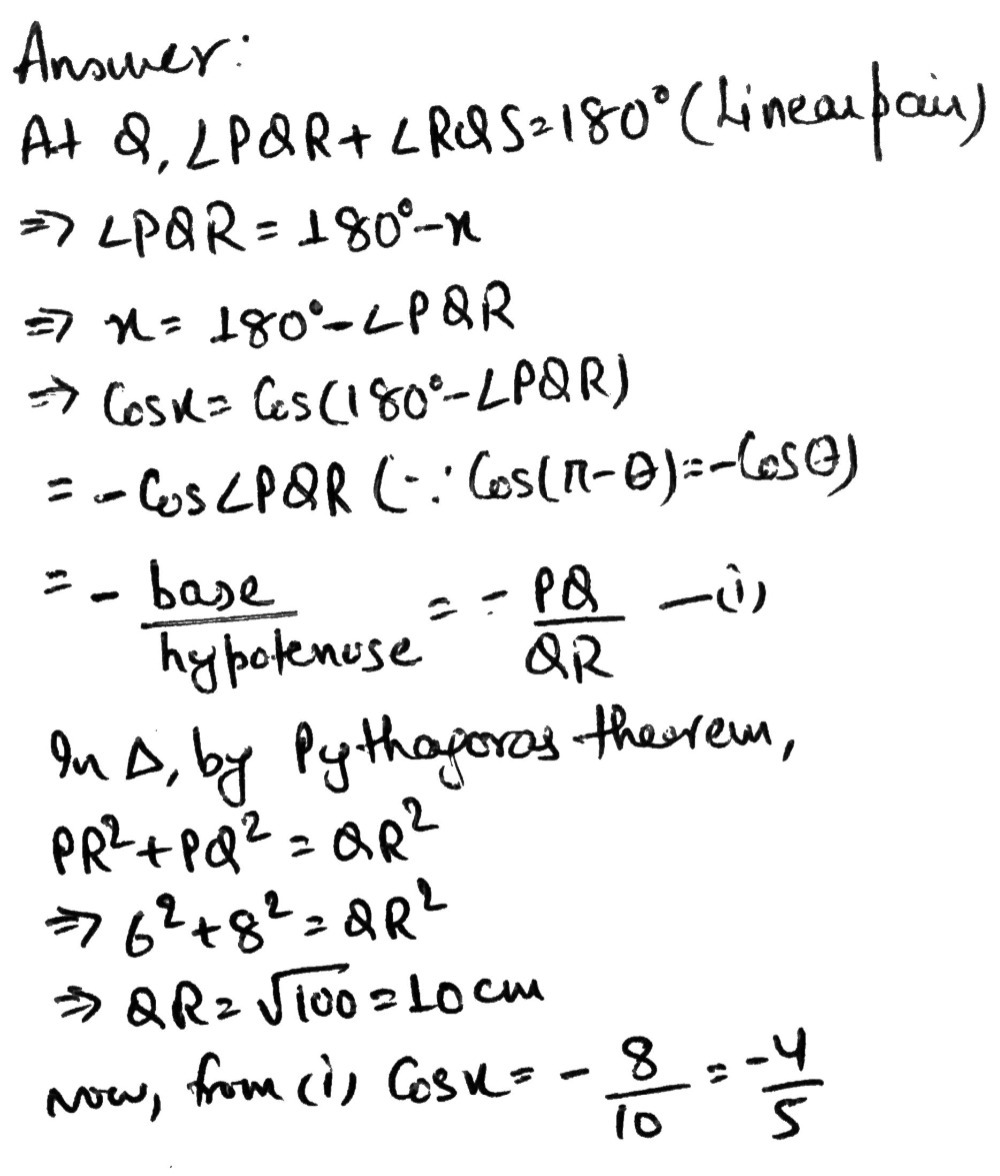 Answer:
At Q, ∠PQR + ∠RQS = 180° (Linear pair)
⇒ ∠PQR = 180° - x
⇒ x = 180° - ∠PQR
⇒ Cos x = Cos(180° - ∠PQR)
= - Cos ∠PQR (∵ Cos(π-θ) = -Cosθ)
= - base/hypotenuse = - PQ/QR —(i)
In Δ, by Pythagoras theorem,
PR² + PQ² = QR²
⇒ 6² + 8² = QR²
⇒ QR = √100 = 10 cm
now, from (i) Cos x = - 8/10 = -4/5